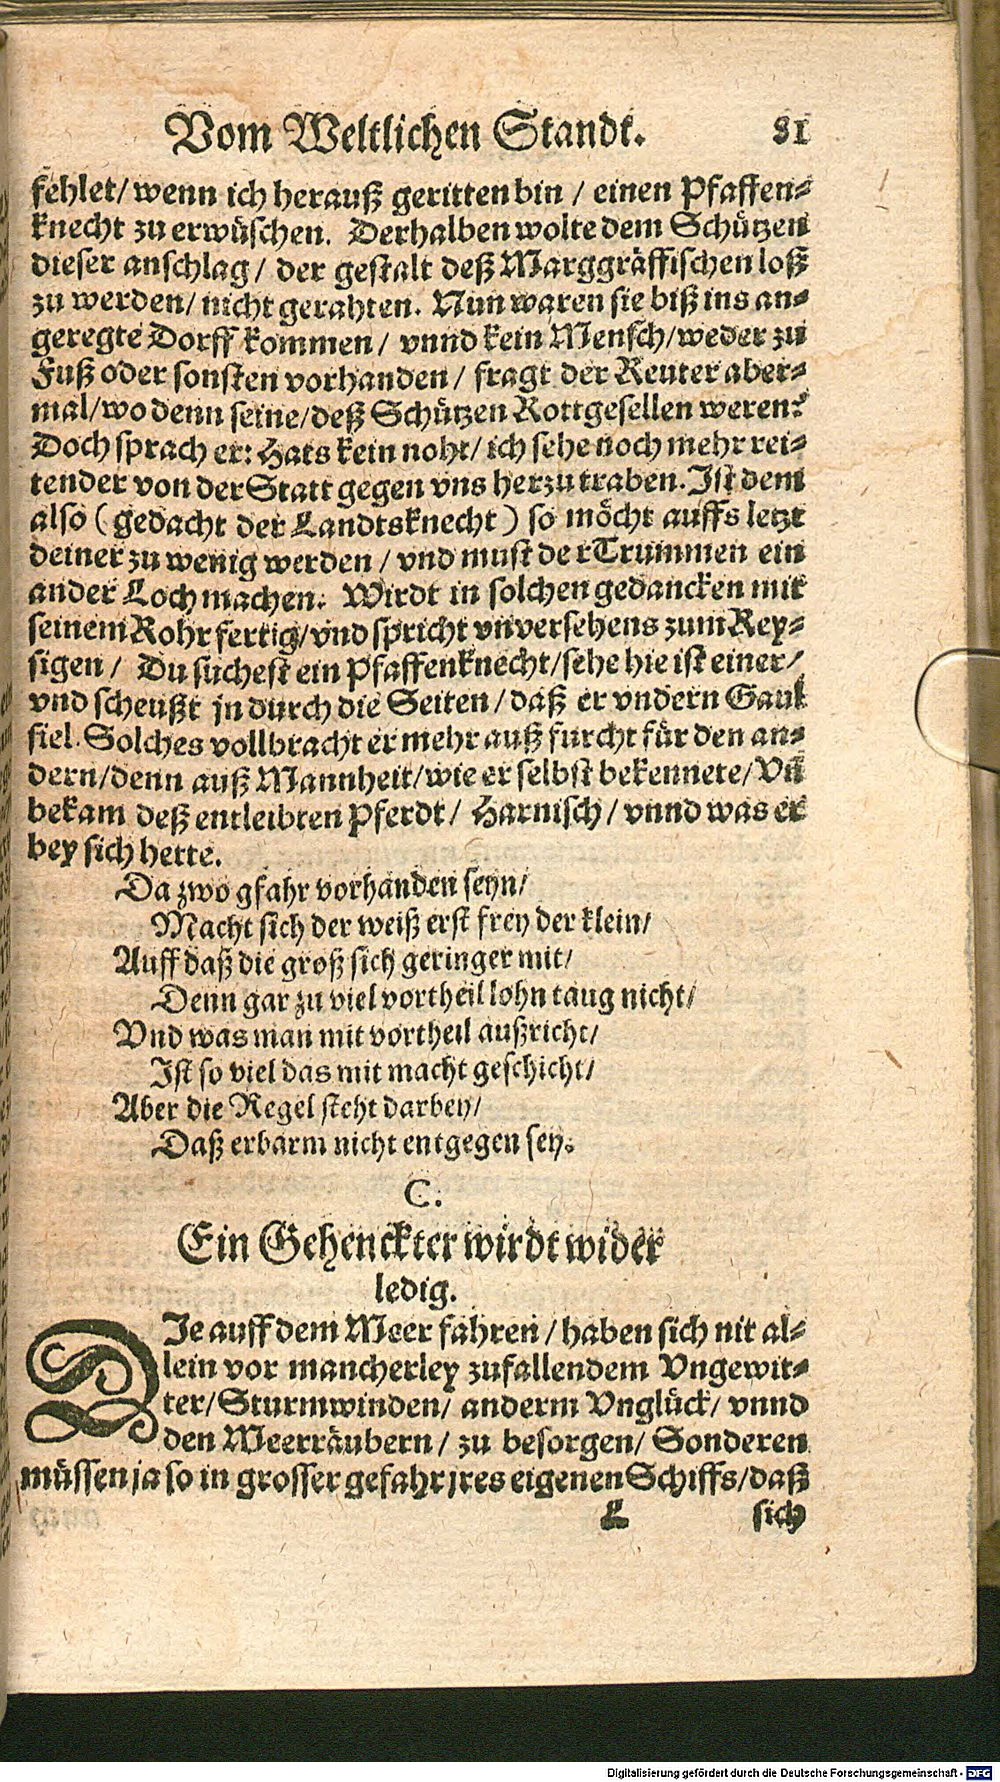 Vom Weltlichen Standt. 81
fehlet/ wenn ich herauß geritten bin / einen Pfaffen⸗
knecht zu erwüschen. Derhalben wolte dem Schützen
dieser anschlag/ der gestalt deß Marggräffischen loß
zu werden/ nicht gerahten. Nun waren sie biß ins an⸗
geregte Dorff kommen/ vnnd kein Mensch/weder zu
Fuß oder sonsten vorhanden/ fragt der Reuter aber⸗
mal/wo denn seine/deß Schützen Rottgesellen weren?
Doch sprach er: Hats kein noht/ ich sehe noch mehr rei⸗
tender von der Statt gegen vns herzu traben. Ist dem
also (gedacht der Landtsknecht) so möcht auffs letzt
deiner zu wenig werden / vnd must de rTrummen ein
ander Loch machen: Wirdt in solchen gedancken mit
seinem Rohr fertig/vnd spricht vnversehens zum Rey⸗
sigen/ Du suchest ein Pfaffenknecht/sehe hie ist einer/
vnd scheußt jn durch die Seiten/daß er vndern Gaul
fiel. Solches vollbracht er mehr auß furcht für den an⸗
dern/denn auß Mannheit/wie er selbst bekennete/Vñ
bekam deß entleibten Pferdt/ Harnisch/ vnnd was er
bey sich hette.
Da zwo gfahr vorhanden seyn/
Macht sich der weiß erst frey der klein/
Auff daß die groß sich geringer mit/
Denn gar zu viel vortheil lohn taug nicht/
Vnd was man mit vortheil außricht/
Ist so viel das mit macht geschicht/
Aber die Regel steht darbey/
Daß erbarm nicht entgegen sey.
C.
Ein Gehenckter wirdt wider
ledig.
DIe auff dem Meer fahren/haben sich nit al⸗
lein vor mancherley zufallendem Vngewit⸗
ter/Sturmwinden/ anderm Vnglück/ vnnd
den Meerräubern/ zu besorgen/ Sonderen
müssen ja so in grosser gefahr jres eigenen Schiffs/daß
L sich
Digitalisierung gefördert durch die Deutsche Forschungsgemeinschaft - DFG